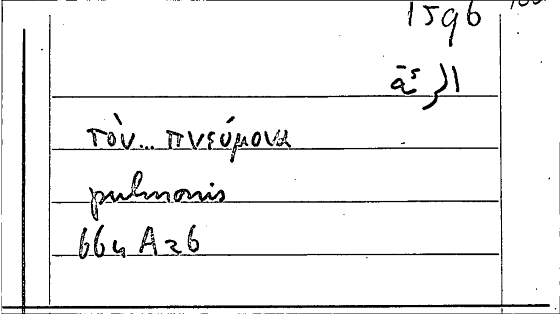 1596
τὸν... πνεύμονα
pulmonis
664 A 26